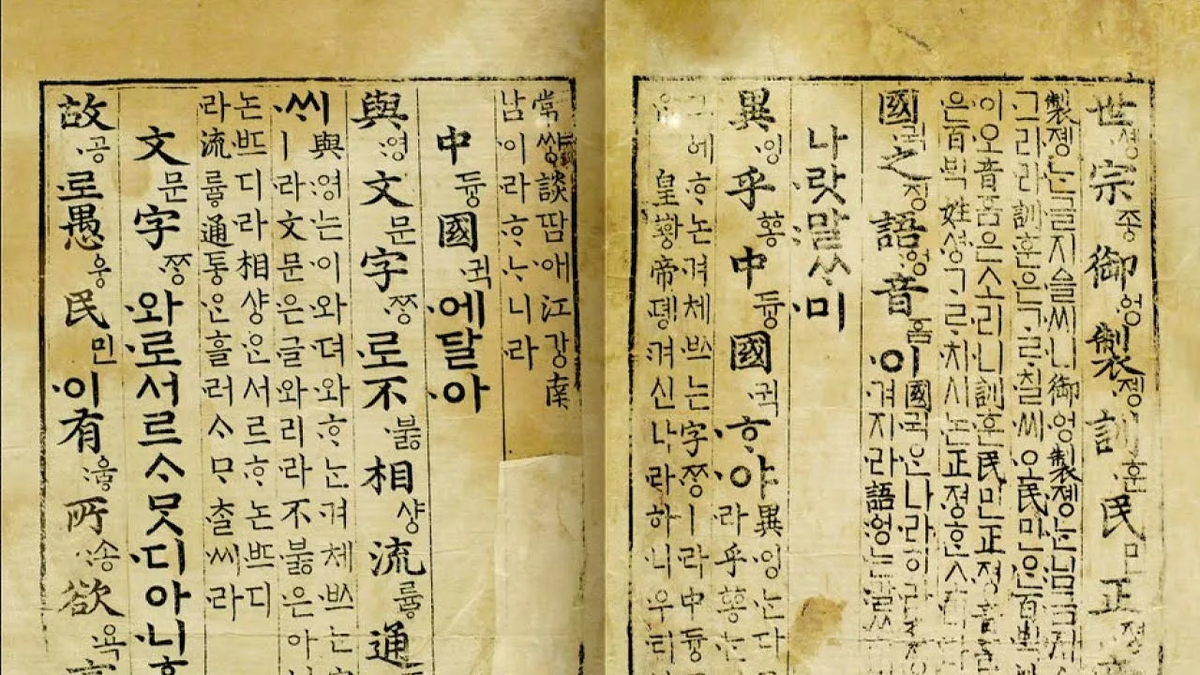 世솅宗조ᇰ御엉製졩訓훈民민正져ᇰ
製졩는글지ᅀᅳᆯ씨니御엉製졩는님금지ᅀ
그리라訓훈은ᄀᆞᄅᆞ칠씨오民민ᄋᆞᆫ百ᄇᆡᆨ
이오音ᅙᅳᆷ은소리니訓훈民민正져ᇰ音ᅙᅳᆷ
은百ᄇᆡᆨ姓셔ᇰᄀᆞᄅᆞ치시논正져ᇰᄒᆞᆫ소리라
國귁之징語ᅌᅥᆼ音ᅙᅳᆷ이
國귁ᄋᆞᆫ나라히라
겨지라語ᅌᅥᆼ는말
나랏말ᄊᆞ미
異잉乎ᅘᅩᆼ中듀ᇰ國귁ᄒᆞ야
異잉는다
라乎ᅘᅩᆼ는
그에ᄒᆞ논겨체ᄡᅳ는字ᄍᆞᆼㅣ라中듀ᇰ
은皇ᅘᅪᇰ帝뎽겨신나라하니우리
常쌰ᇰ談땀애江가ᇰ南
남이라ᄒᆞᄂᆞ니라
中듀ᇰ國귁에달아
與영文문字ᄍᆞᆼ로不부ᇙ相샤ᇰ流류ᇢ通
씨
與영는이와뎌와ᄒᆞ논겨체ᄡᅳ는
ㅣ라文문은글와리라不부ᇙ은아
논ᄠᅳ디라相샤ᇰᄋᆞᆫ서르ᄒᆞ논ᄠᅳ디
라流류ᇢ通토ᇰᄋᆞᆫ흘러ᄉᆞᄆᆞᄎᆞᆯ씨라
文문字ᄍᆞᆼ와로서르ᄉᆞᄆᆞᆺ디아니
故공로愚ᅌᅮᆼ民민이有우ᇢ所송欲욕